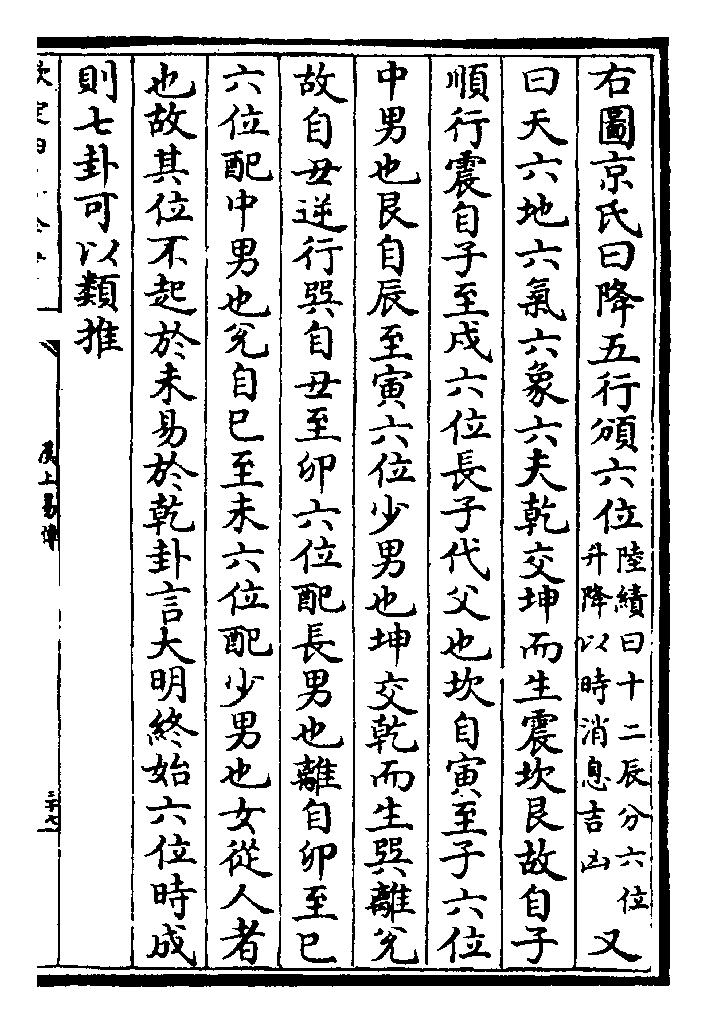 右圖京氏曰降五行頒六位陸績曰十二辰分六位升降以時消息吉凶又
曰天六地六氣六象六夫乾交坤而生震坎艮故自子
順行震自子至戌六位長子代父也坎自寅至子六位
中男也艮自辰至寅六位少男也坤交乾而生巽離兌
故自丑逆行巽自丑至卯六位配長男也離自卯至巳
六位配中男也兌自巳至未六位配少男也女從人者
也故其位不起於未易於乾卦言大明終始六位時成
則七卦可以類推
漢上易傳
三十七